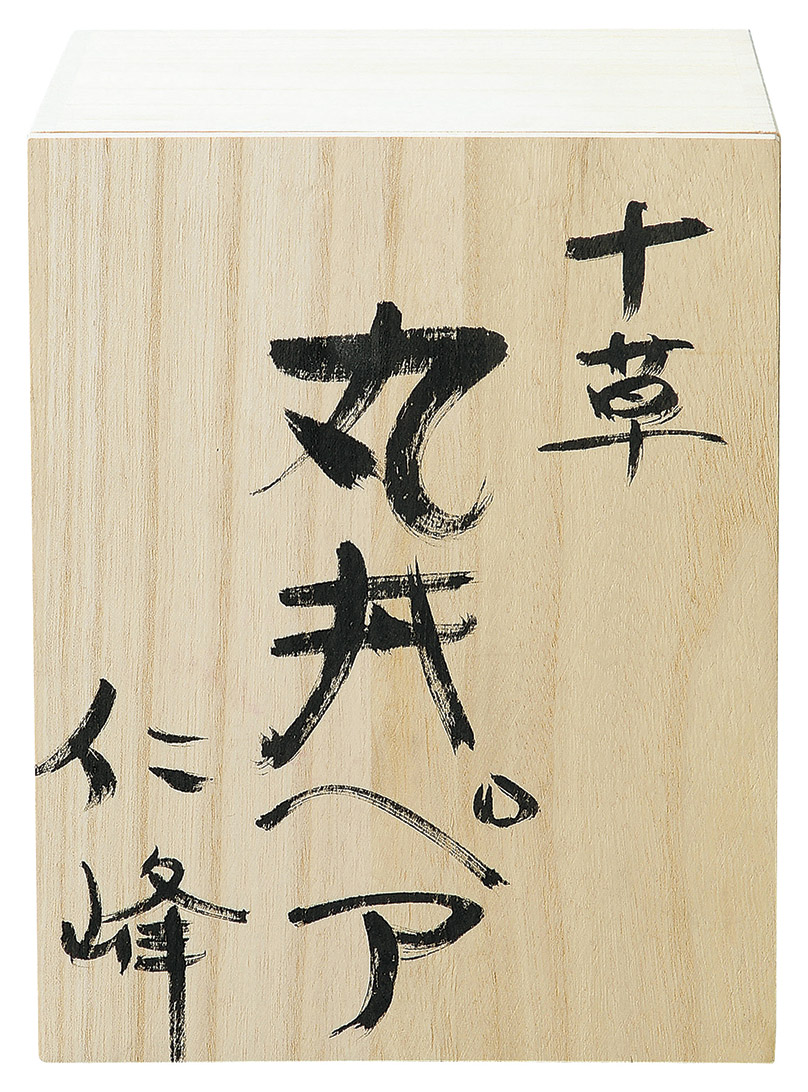 十草
丸丼ペア
仁峰